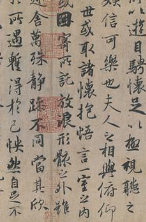 以遊目騁懷足以極視聽之
娛信可樂也夫人之相與俯仰
世或取諸懷抱悟言一室之內
或因寄所託放浪形骸之外雖
舍萬殊靜躁不同當其欣
所遇蹔得於己怏然自足不